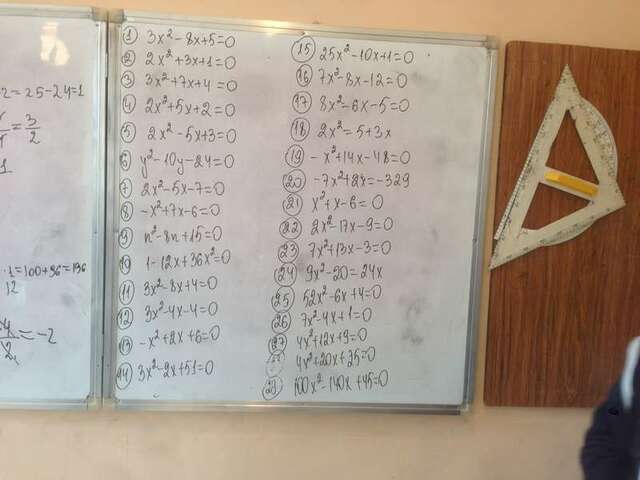 2=25-24=1
= 3/2
1
·1=100+96=196
12
= -2
① 3x²-8x+5=0
② 2x²+3x+1=0
③ 3x²+7x+4=0
④ 2x²+5x+2=0
⑤ 2x²-5x+3=0
⑥ y²-10y-24=0
⑦ 2x²-5x-7=0
⑧ -x²+7x-6=0
⑨ n²-8n+15=0
⑩ 1-12x+36x²=0
⑪ 3x²-8x+4=0
⑫ 3x²-4x-4=0
⑬ -x²+2x+6=0
⑭ 3x²-2x+51=0
⑮ 25x²-10x+1=0
⑯ 7x²-8x-12=0
⑰ 8x²-6x-5=0
⑱ 2x²=5+3x
⑲ -x²+14x-48=0
⑳ -7x²+2x=-329
㉑ x²+x-6=0
㉒ 2x²-17x-9=0
㉓ 7x²+13x-3=0
㉔ 9x²-20=24x
㉕ 52x²-6x+4=0
㉖ 7x²-4x+1=0
㉗ 4x²+12x+9=0
4x²+20x+25=0
100x²-140x+45=0